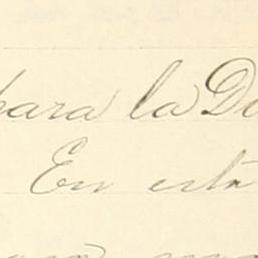 para la Di
En esta